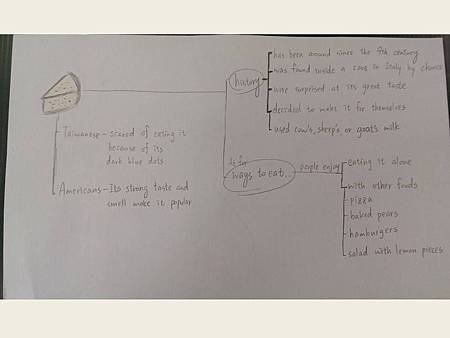 history
has been around since the 9th century
was found inside a cave in Italy by chance
were surprised at its great taste
decided to make it for themselves
used cow's, sheep's, or goat's milk
Taiwanese - scared of eating it
because of its
dark blue dots
Americans - Its strong taste and
smell make it popular
As for
ways to eat...
people enjoy
eating it alone
with other foods
pizza
baked pears
hamburgers
salad with lemon pieces